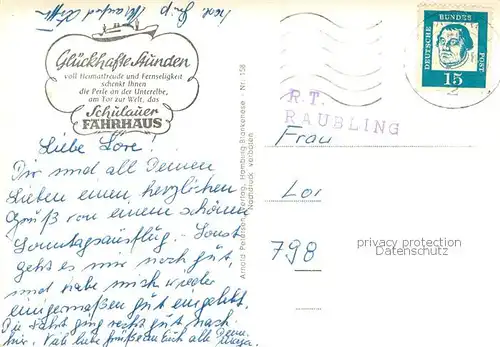 Glückhafte Stunden
voll Heimatfreude und Fernseligkeit
schenkt Ihnen
die Perle an der Unterelbe,
am Tor zur Welt, das
Schulauer
FÄHRHAUS
Liebe Lore!
Dir und all Deinen
Lieben einen herzlichen
Gruß von einem schönen
Sonntagsausflug. Sonst
geht es mir noch gut,
und habe mich wieder
einigermaßen gut eingelebt.
Die Fahrt ging recht gut nach
hier. Viele liebe Grüße an Euch alle Deine
Arnold Petersen, Verlag, Hamburg-Blankenese Nr. 158
Nachdruck verboten
DEUTSCHE BUNDES POST
15
R.T.
RAUBLING
Frau
Lor
798
privacy protection
Datenschutz